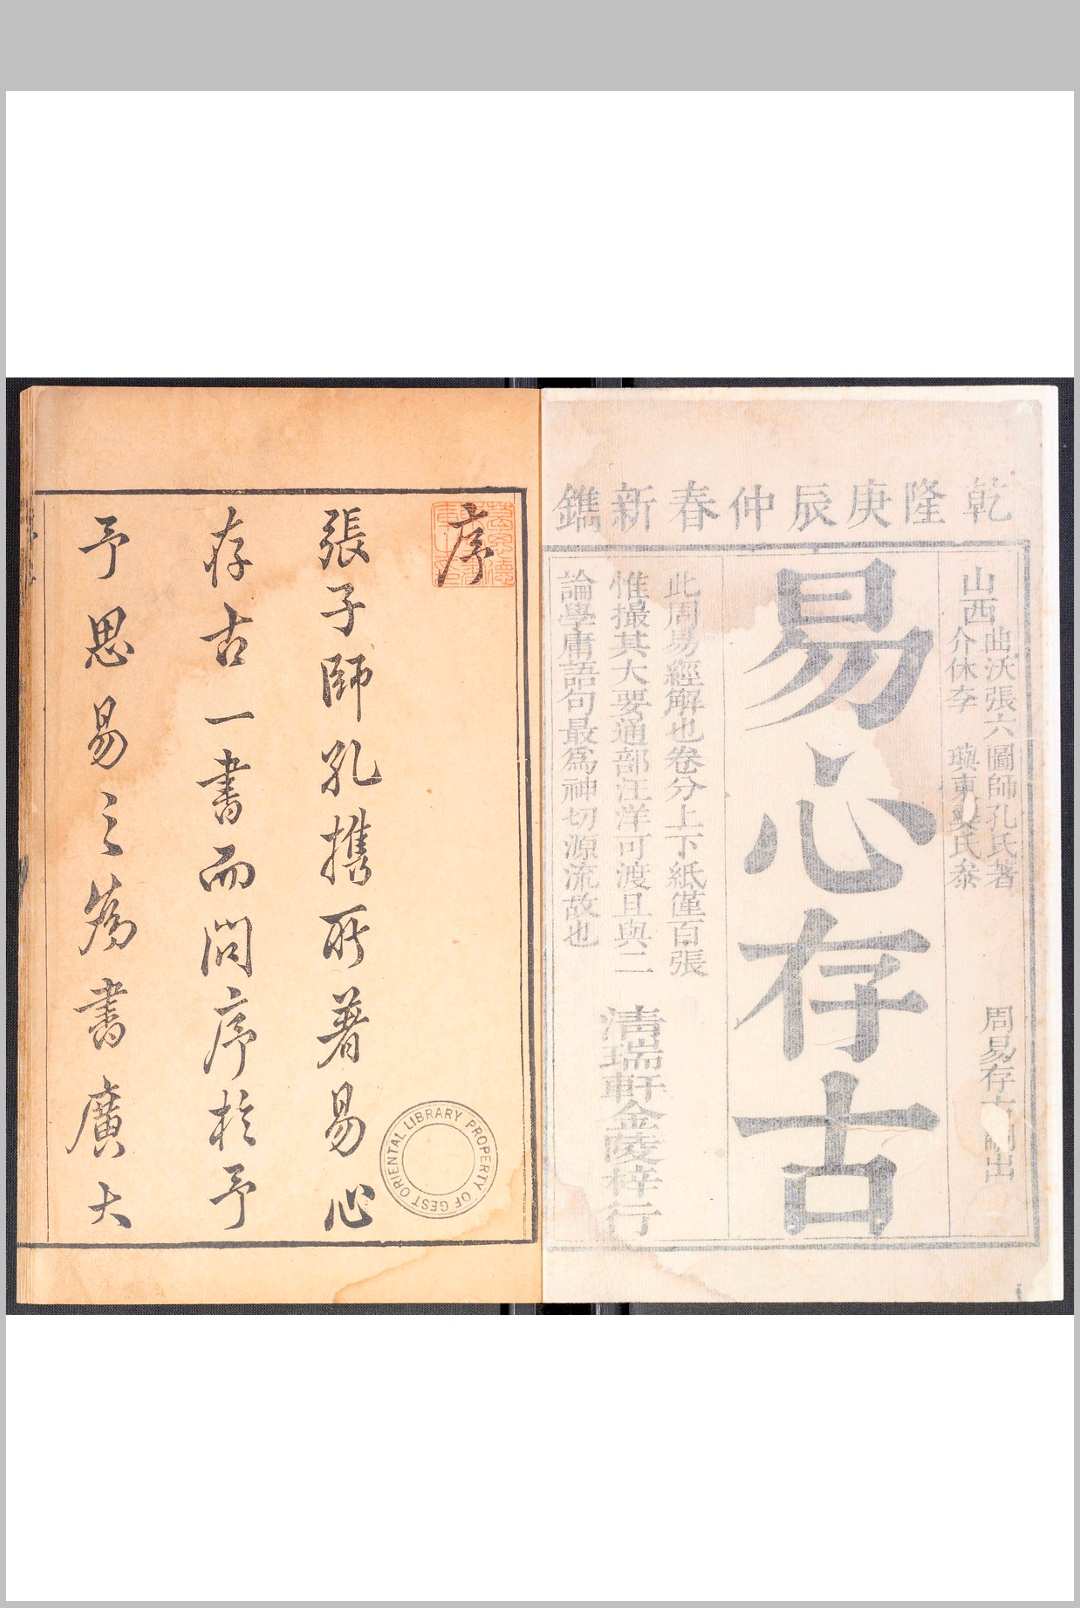 乾隆庚辰仲春新鐫
山西
曲沃張六圖師孔氏著
介休李
氏泰
周易存古嗣出
易心存古
此周易經解也卷分上下紙僅百張
惟撮其大要通部汪洋可渡且與二
論學庸語句最為神切源流故也
清瑞軒金陵梓行
序
張子師孔携所著易心
存古一書而問序於予
予思易之為書廣大
ORIENTAL LIBRARY PROPERTY OF GEST